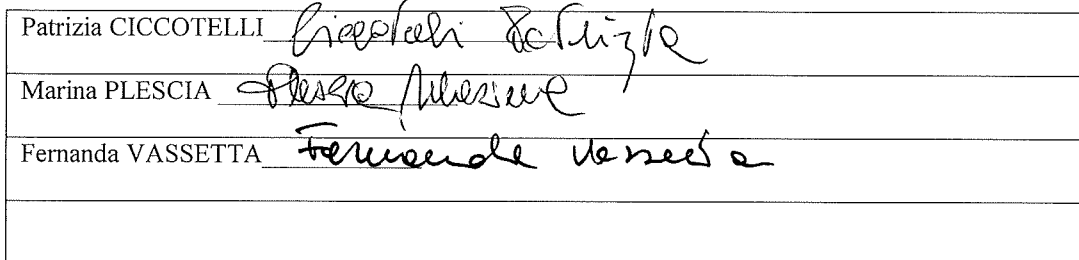 Patrizia CICCOTELLI Ciccotelli Patrizia
Marina PLESCIA Plescia Marina
Fernanda VASSETTA Fernanda Vassetta